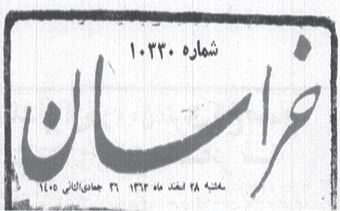 شماره ۱۰۳۳۰
خراسان
سه‌شنبه ۲۸ اسفند ماه ۱۳۶۳ ۲۶ جمادی‌الثانی ۱۴۰۵